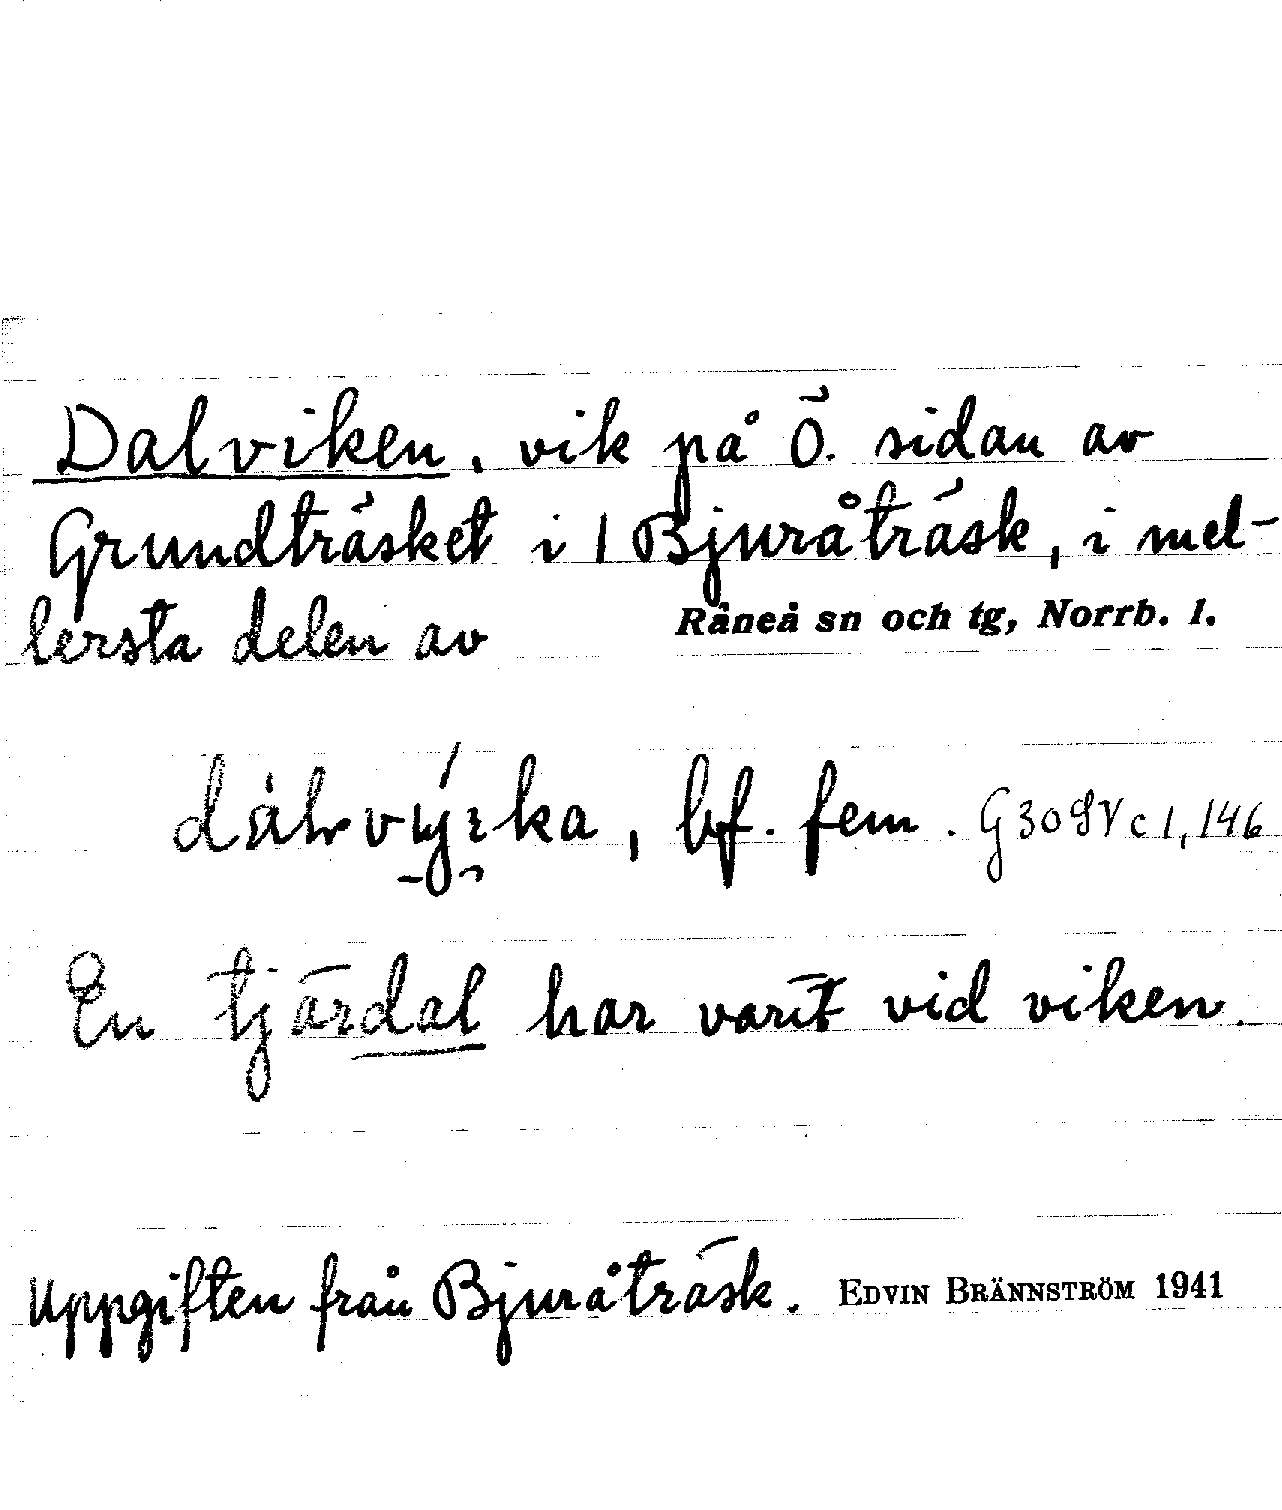 Dalviken, vik på Ö. sidan av
Grundträsket i 1 Bjuråträsk, i mel-
lersta delen av Råneå sn och tg, Norrb. l.
bf. fem.
En tjärdal har varit vid viken.
Uppgiften från Bjuråträsk. EDVIN BRÄNNSTRÖM 1941